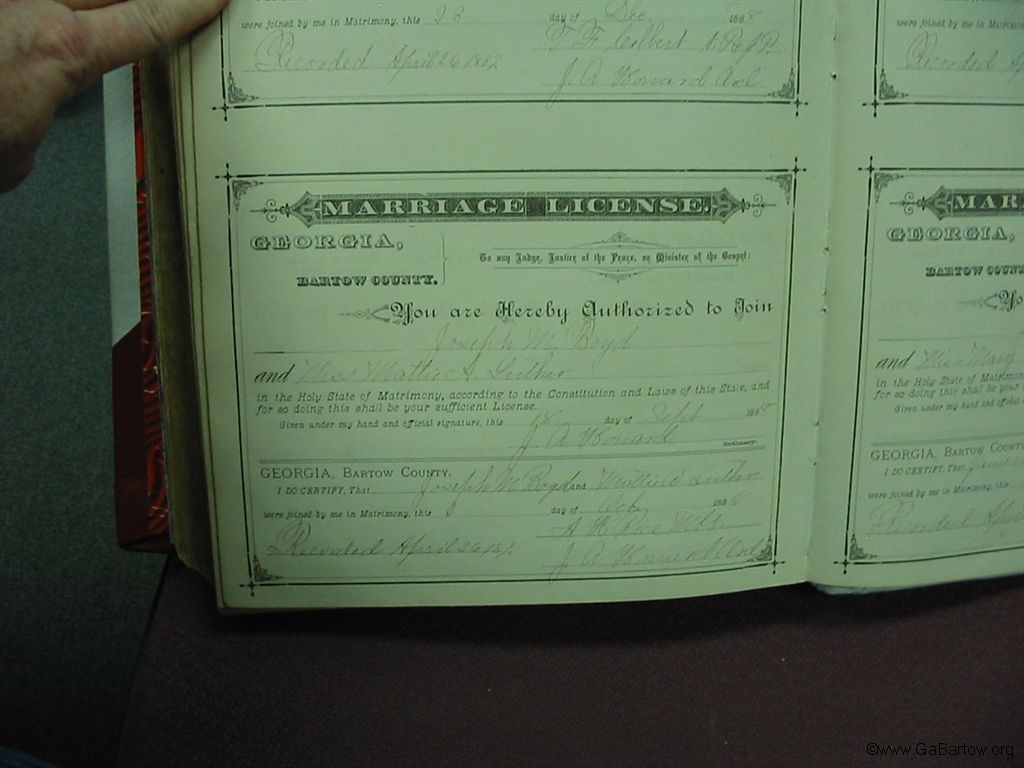 were joined by me in Matrimony, this 28 day of Dec 1888
Recorded April 26 1889
J. A. Howard Ord
MARRIAGE LICENSE.
GEORGIA,
BARTOW COUNTY.
To any Judge, Justice of the Peace, or Minister of the Gospel:
You are Hereby Authorized to Join
Joseph M. Boyd
and Miss Mattie A. Luther
in the Holy State of Matrimony, according to the Constitution and Laws of this State, and
for so doing this shall be your sufficient License.
Given under my hand and official signature, this 18 day of Sept 1888
J. A. Howard Ordinary.
GEORGIA, BARTOW COUNTY.
I DO CERTIFY, That Joseph M Boyd and Mattie A Luther
were joined by me in Matrimony, this 3 day of Oct 1888
Recorded April 26 188
J. A. Howard Ord
MAR
GEORGIA,
BARTOW COUN
Yo
and Miss Mary
in the Holy State of Matrimon
for so doing this shall be your
Given under my hand and official
GEORGIA, BARTOW CO
I DO CERTIFY, That James
were joined by me in Matrimony, this
Recorded Apri
©www.GaBartow.org